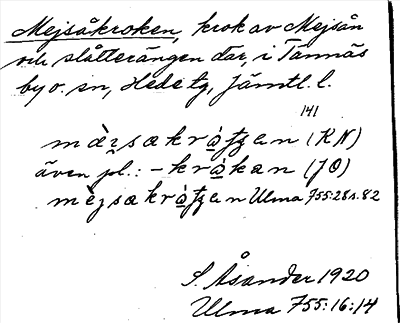 Mejsåkroken, krok av Mejsån
och slåtterängen där, i Tännäs
by o. sn, Hede tg, Jämtl. l.
141
mèi̯sakrò̱ʈʂen (KN)
även pl.: -kròkan (JÖ)
mèjsakròʈʂen Ulma 755:28 s. 82
S. Åsander 1920
Ulma 755:16:14